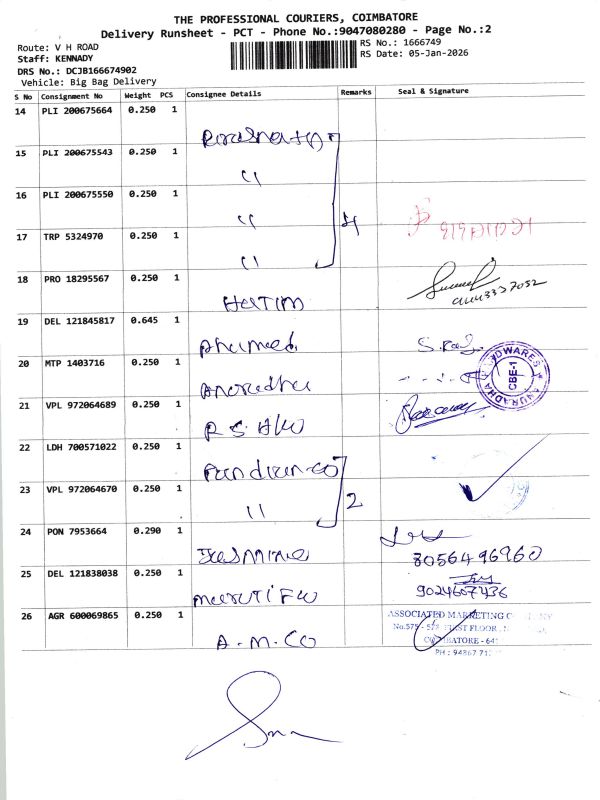 THE PROFESSIONAL COURIERS, COIMBATORE
Delivery Runsheet - PCT - Phone No.:9047080280 - Page No.:2
Route: V H ROAD
RS No.: 1666749
Staff: KENNADY
RS Date: 05-Jan-2026
DRS No.: DCJB166674902
Vehicle: Big Bag Delivery
S No Consignment No Weight PCS Consignee Details Remarks Seal & Signature
14 PLI 200675664 0.250 1
15 PLI 200675543 0.250 1 "
16 PLI 200675550 0.250 1 " 4
17 TRP 5324970 0.250 1 "
18 PRO 18295567 0.250 1 HATIM
19 DEL 121845817 0.645 1 Ahamed
20 MTP 1403716 0.250 1 Anuradha
ANURADHA HARDWARES
CBE-1
21 VPL 972064689 0.250 1
22 LDH 700571022 0.250 1 Pandian-Co
23 VPL 972064670 0.250 1 " 2
24 PON 7953664 0.290 1 Jasmine
8056496960
25 DEL 121838038 0.250 1
9024607436
26 AGR 600069865 0.250 1 A.M.CO
ASSOCIATED MARKETING
FIRST FLOOR
COIMBATORE - 641
PH : 94867